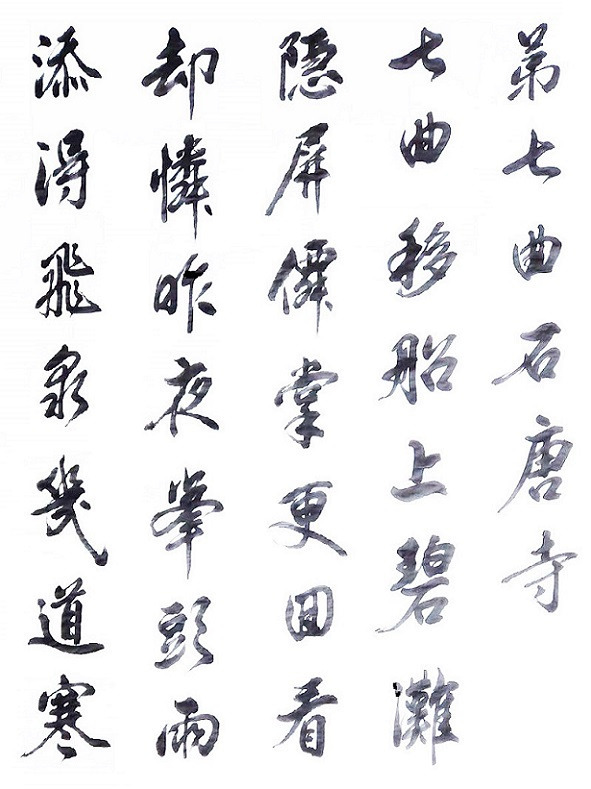 第七曲石唐寺
七曲移船上碧灘
隱屏僊掌更回看
却憐昨夜峯頭雨
添得飛泉幾道寒